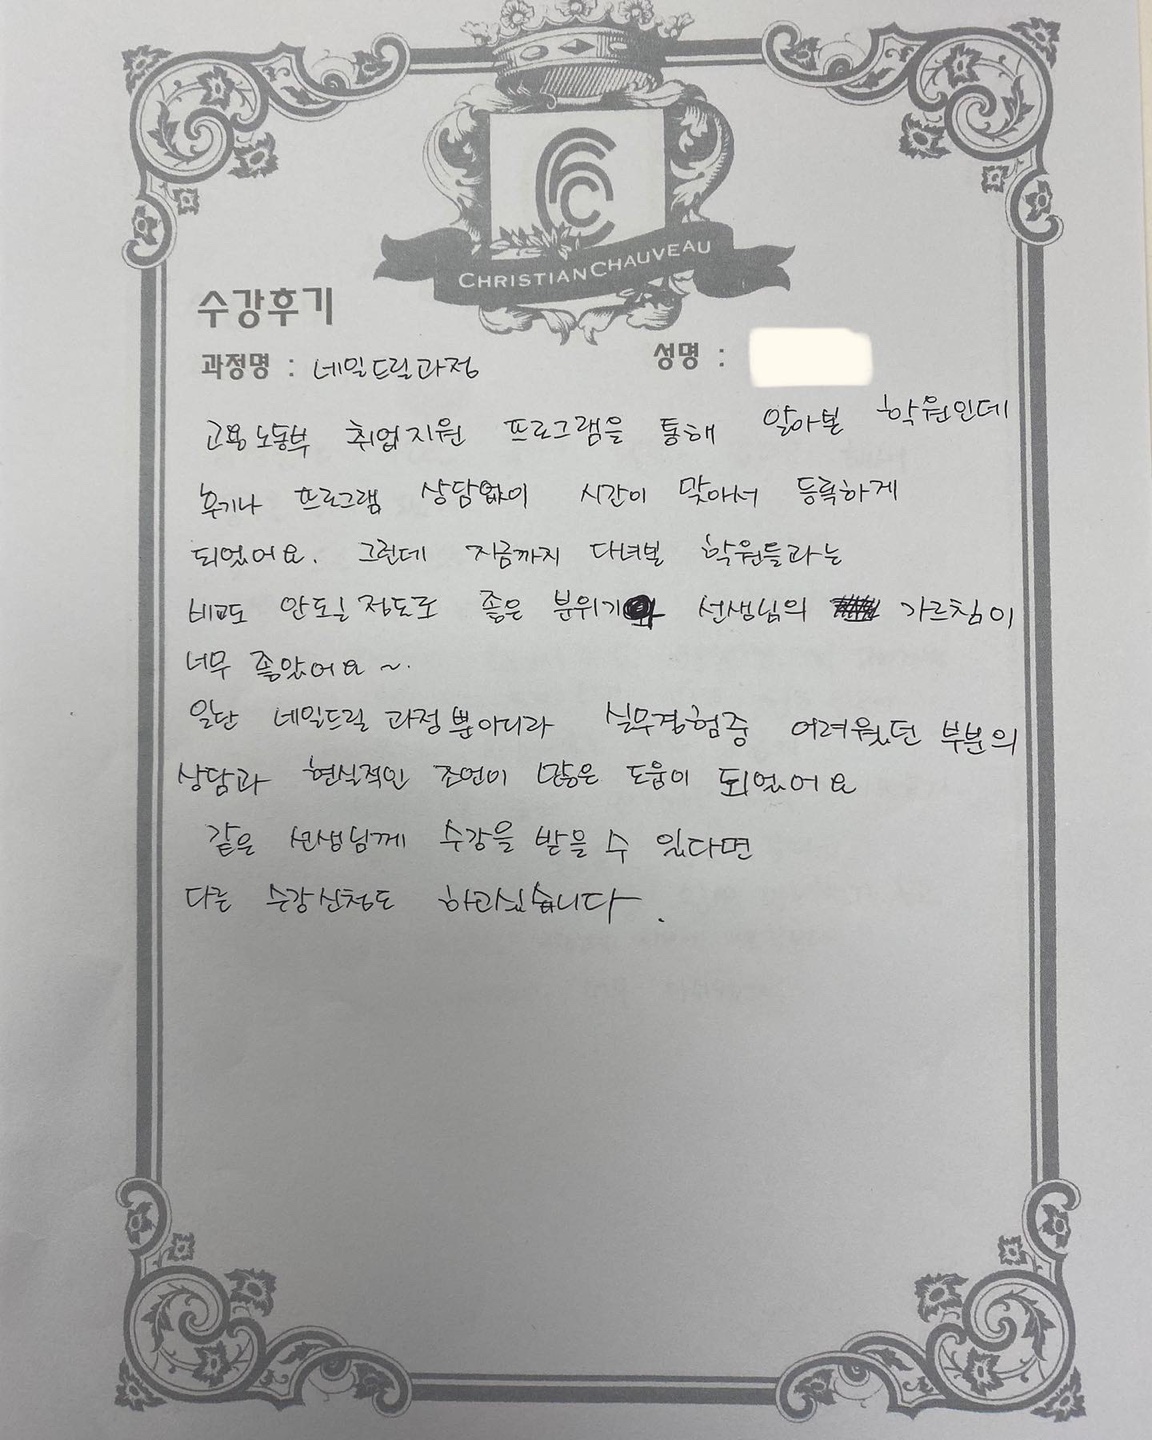 CHRISTIAN CHAUVEAU
수강후기
과정명 : 네일드릴과정
성명 :
고용노동부 취업지원 프로그램을 통해 알아본 학원인데
후기나 프로그램 상담없이 시간이 맞아서 등록하게
되었어요. 그런데 지금까지 다녀본 학원들과는
비교도 안될 정도로 좋은 분위기와 선생님의 가르침이
너무 좋았어요~.
일단 네일드릴 과정뿐아니라 실무경험중 어려웠던 부분의
상담과 현실적인 조언이 많은 도움이 되었어요
같은 선생님께 수강을 받을 수 있다면
다른 수강신청도 하고싶습니다.